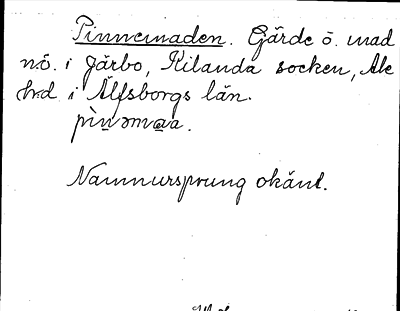 Pinnemaden. Gärde o. mad
nö. i Järbo, Kilanda socken, Ale
hd i Älfsborgs län.

Namnursprung okänt.